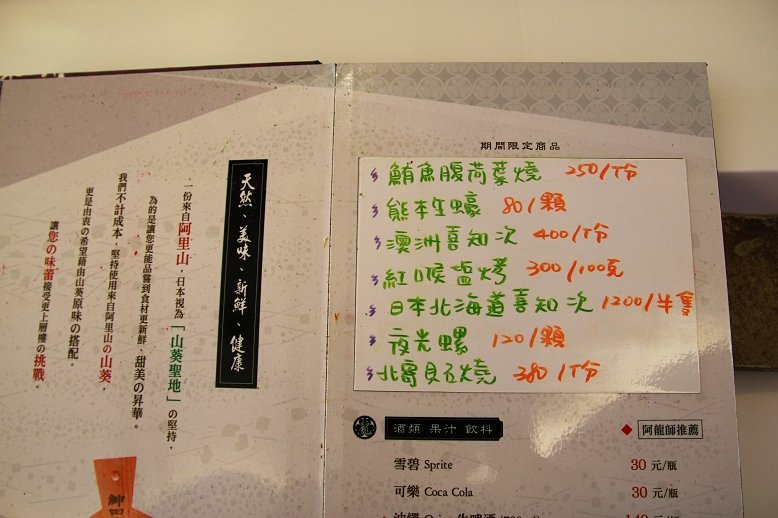 天然、美味、新鮮、健康
一份來自阿里山,日本視為「山葵聖地」的堅持,
為的是讓您更能品嘗到食材更新鮮、甜美の昇華。
我們不計成本,堅持使用來自阿里山の山葵,
更是由衷の希望藉由山葵原味の搭配。
讓您の味蕾接受更上層樓の挑戰。
期間限定商品
鮪魚腹荷葉燒 250/份
熊本生蠔 80/顆
澳洲喜知次 400/份
紅喉鹽烤 300/100克
日本北海道喜知次 1200/半隻
夜光螺 120/顆
北寄貝石燒 380/份
酒類 果汁 飲料
◆ 阿龍師推薦
雪碧 Sprite 30 元/瓶
可樂 Coca Cola 30 元/瓶